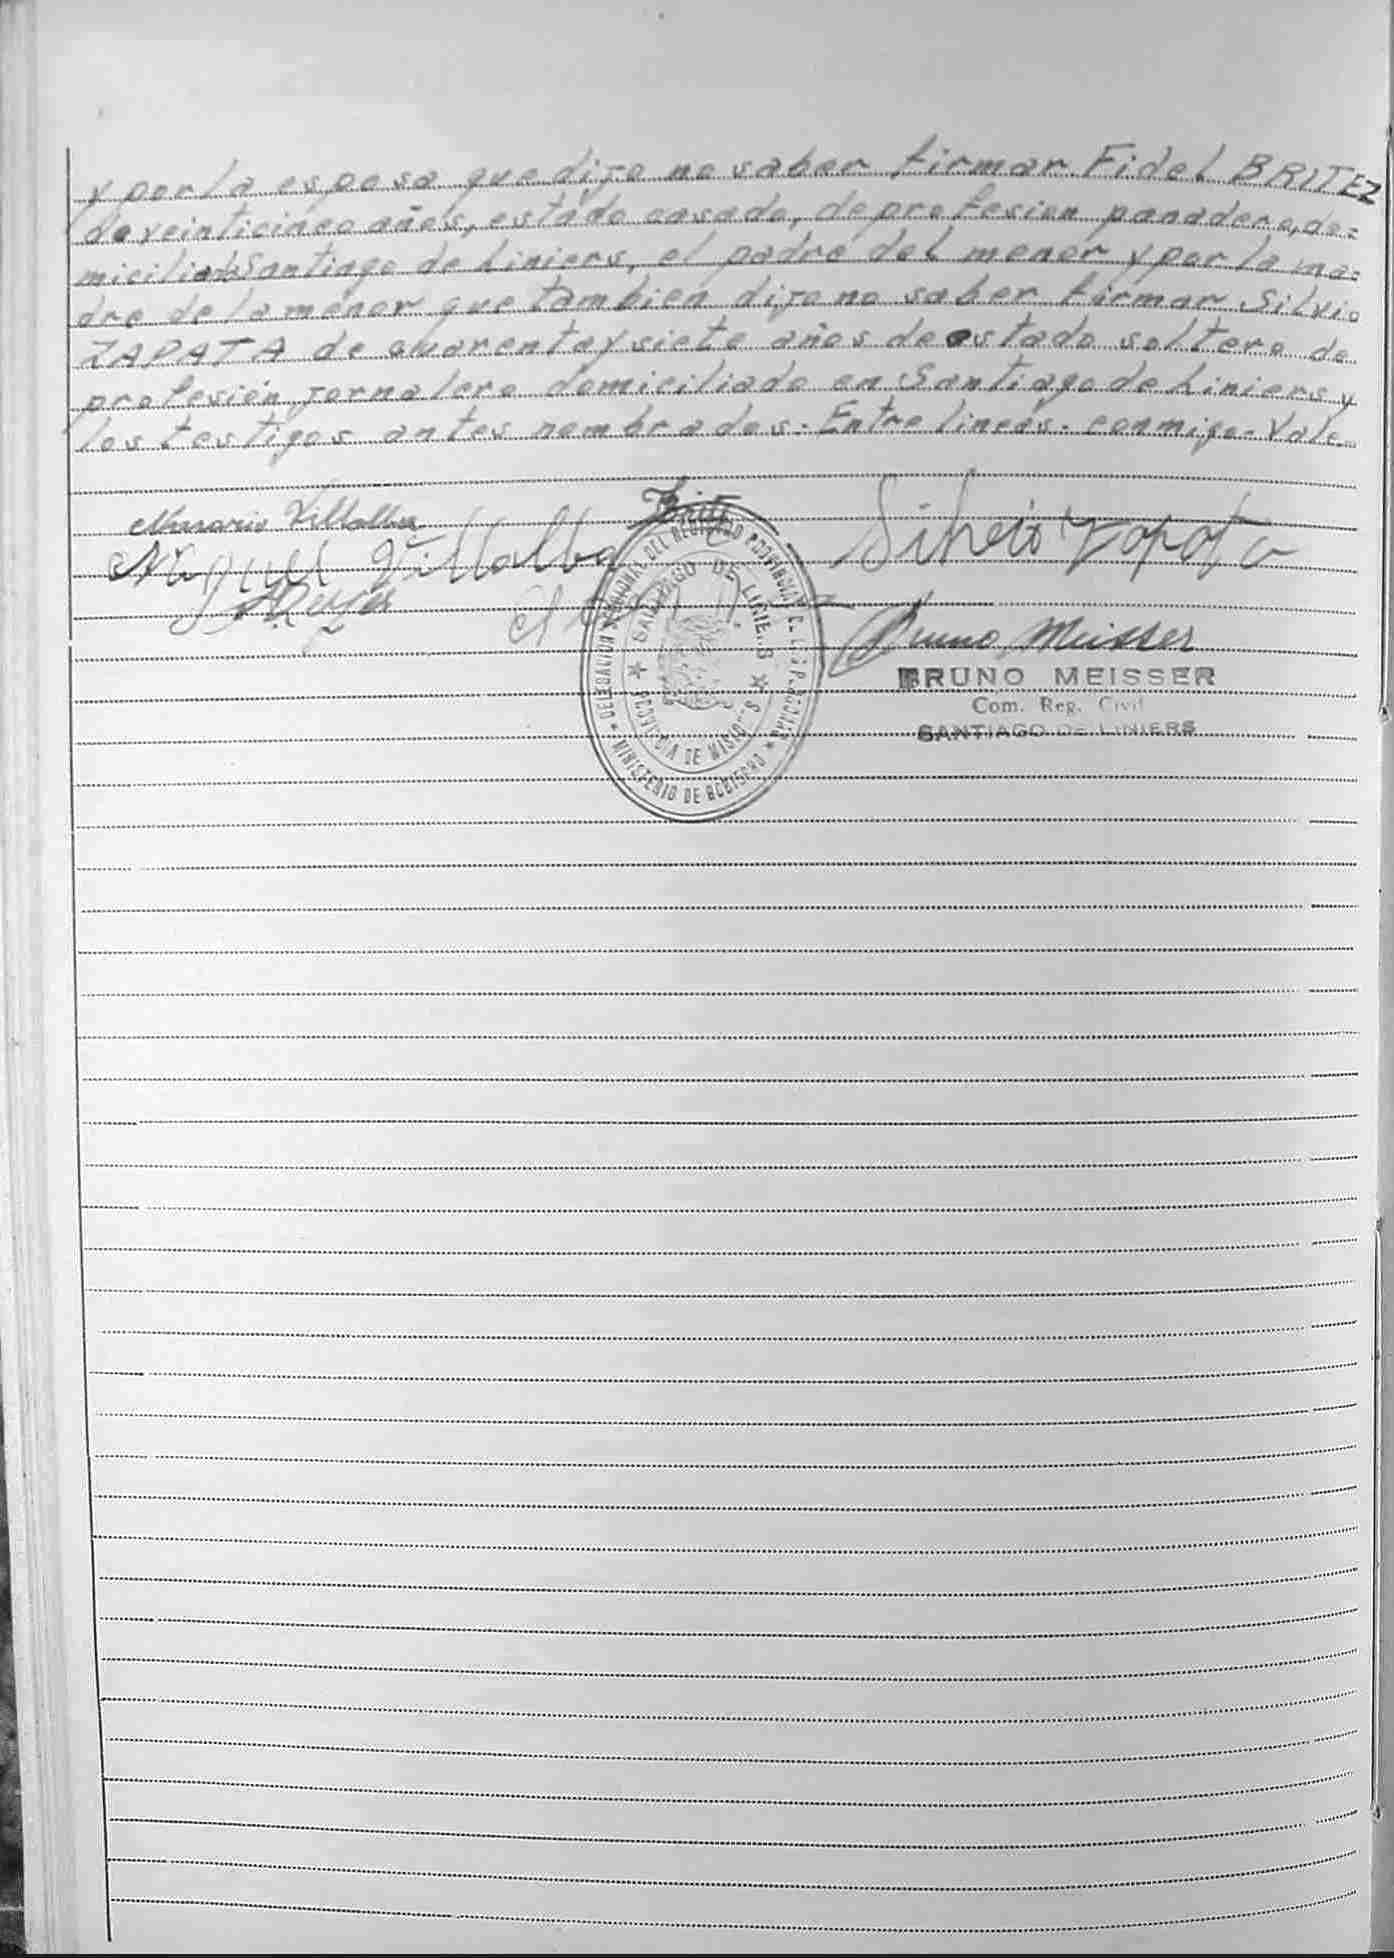 y por la esposa que dijo no saber firmar Fidel BRITEZ
de veinticinco años, estado casado, de profesion panadero, do=
miciliado Santiago de Liniers, el padre del menor y por la ma=
dre de la menor que tambien dijo no saber firmar Silvio
ZAPATA de cuarenta y siete años de estado soltero de
profesión jornalero domiciliado en Santiago de Liniers y
los testigos antes nombrados. Entre lineas. conmigo. Vale.
Villalba
Miguel Villalba
Silvio Zapata
Bruno Meisser
BRUNO MEISSER
Com. Reg. Civil
SANTIAGO DE LINIERS
SANTIAGO DE LINIERS
PROVINCIA DE MISIONES
MINISTERIO DE GOBIERNO